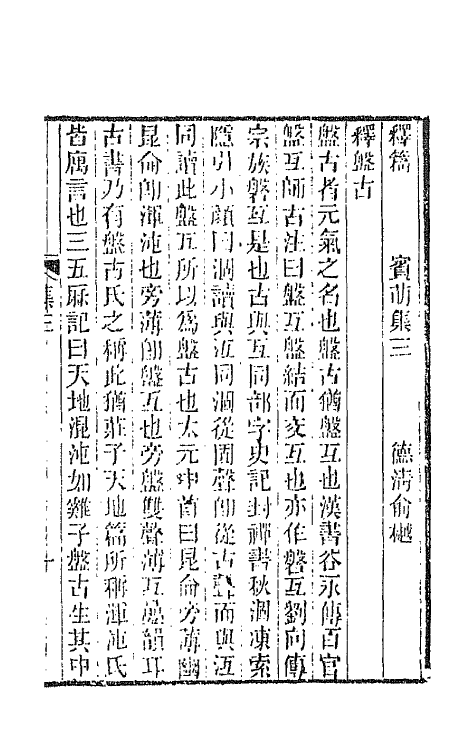 釋篇　賓萌集三　德淸俞樾
釋盤古
盤古者元氣之名也盤古猶盤互也漢書谷永傳百官
盤互師古注曰盤互盤結而交互也亦作磐互劉向傳
宗族磐互是也古與互同部字史記封禪書秋涸凍索
隱引小顏曰涸讀與沍同涸從固聲卽從古聲而與沍
同讀此盤互所以爲盤古也太元中首曰昆侖旁薄幽
昆侖卽渾沌也旁薄卽盤互也旁盤雙聲薄互疊韻耳
古書乃有盤古氏之稱此猶莊子天地篇所稱渾沌氏
皆寓言也三五厤記曰天地混沌如雞子盤古生其中
集三